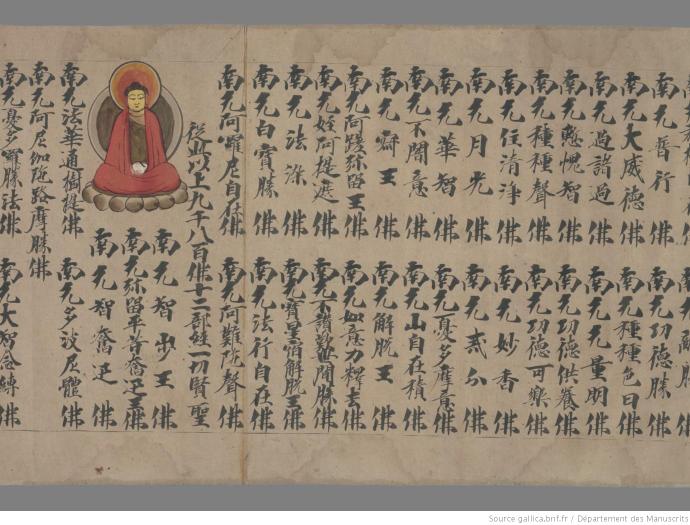 南无誓行佛 南无功德勝佛
南无大威德佛 南无種種色日佛
南无過諸過佛 南无量明佛
南无慙愧智佛 南无功德供養佛
南无種種聲佛 南无功德可樂佛
南无住清浄佛 南无妙香佛
南无月光佛 南无貳分佛
南无華智佛 南无憂多摩意佛
南无不闇意佛 南无山自在積佛
南无王佛 南无解脱王佛
南无阿弥留王佛 南无如意力釋去佛
南无阿提遮佛 南无不讃歎世間勝佛
南无法染佛 南无寶星宿解脱王佛
南无白寶勝佛 南无法行自在佛
南无阿羅尼自在佛 南无阿難陀聲佛
從此以上九千八百佛十二部經一切賢聖
南无智步王佛
南无弥留平等奮迅王佛
南无智奮迅佛
南无法華通樹提佛 南无多波尼體佛
南无阿尼伽陁路摩勝佛
南无憂多羅勝法佛 南无大智念縛佛
Source gallica.bnf.fr / Département des Manuscrits